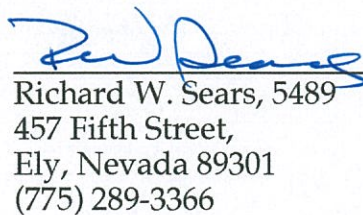 Richard W. Sears, 5489
457 Fifth Street,
Ely, Nevada 89301
(775) 289-3366